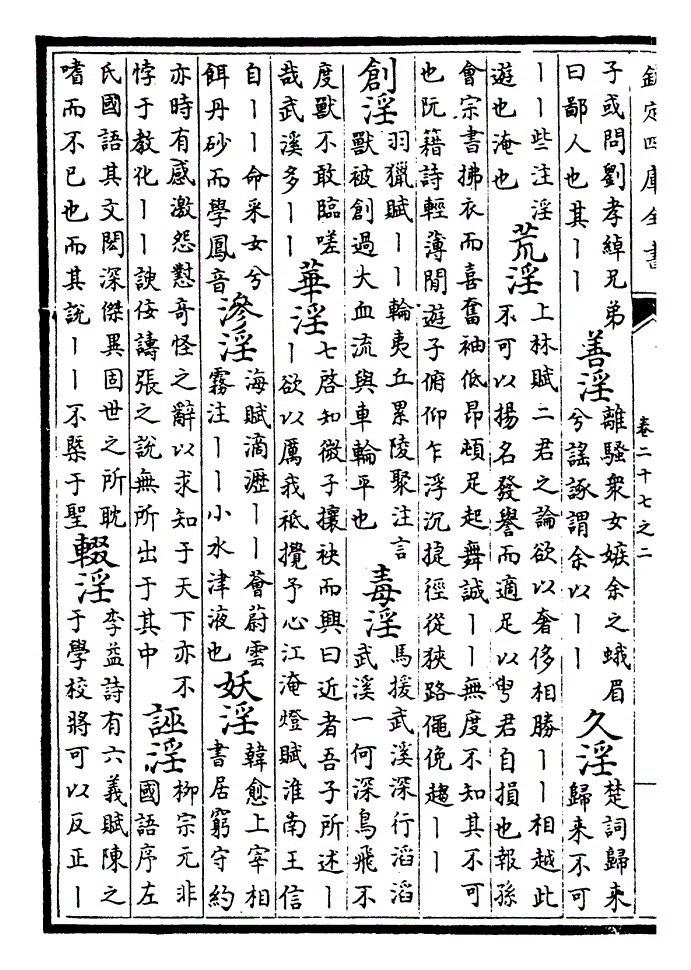 欽定四庫全書
卷二十七之二
子或問劉孝綽兄弟
曰鄙人也其丨丨
善淫
離騷衆女嫉余之蛾眉
兮謠諑謂余以丨丨
久淫
楚詞歸來
歸來不可
丨丨些注淫
遊也淹也
荒淫
上林賦二君之論欲以奢侈相勝丨丨相越此
不可以揚名發譽而適足以𢌿君自損也報孫
會宗書拂衣而喜奮袖低昂頓足起舞誠丨丨無度不知其不可
也阮籍詩輕薄閒遊子俯仰乍浮沉捷徑從狹路僶俛趨丨丨
創淫
羽獵賦丨丨輪夷丘累陵聚注言
獸被創過大血流與車輪平也
毒淫
馬援武溪深行滔滔
武溪一何深鳥飛不
度獸不敢臨嗟
哉武溪多丨丨
華淫
七啓知微子攘袂而興曰近者吾子所述丨
丨欲以厲我祗攪予心江淹燈賦淮南王信
自丨丨命采女兮
餌丹砂而學鳳音
滲淫
海賦滴瀝丨丨薈蔚雲
霧注丨丨小水津液也
妖淫
韓愈上宰相
書居窮守約
亦時有感激怨懟奇怪之辭以求知于天下亦不
悖于教化丨丨諛佞譸張之說無所出于其中
誣淫
柳宗元非
國語序左
氏國語其文閎深傑異固世之所耽
嗜而不已也而其說丨丨不槩于聖
輟淫
李益詩有六義賦陳之
于學校將可以反正丨